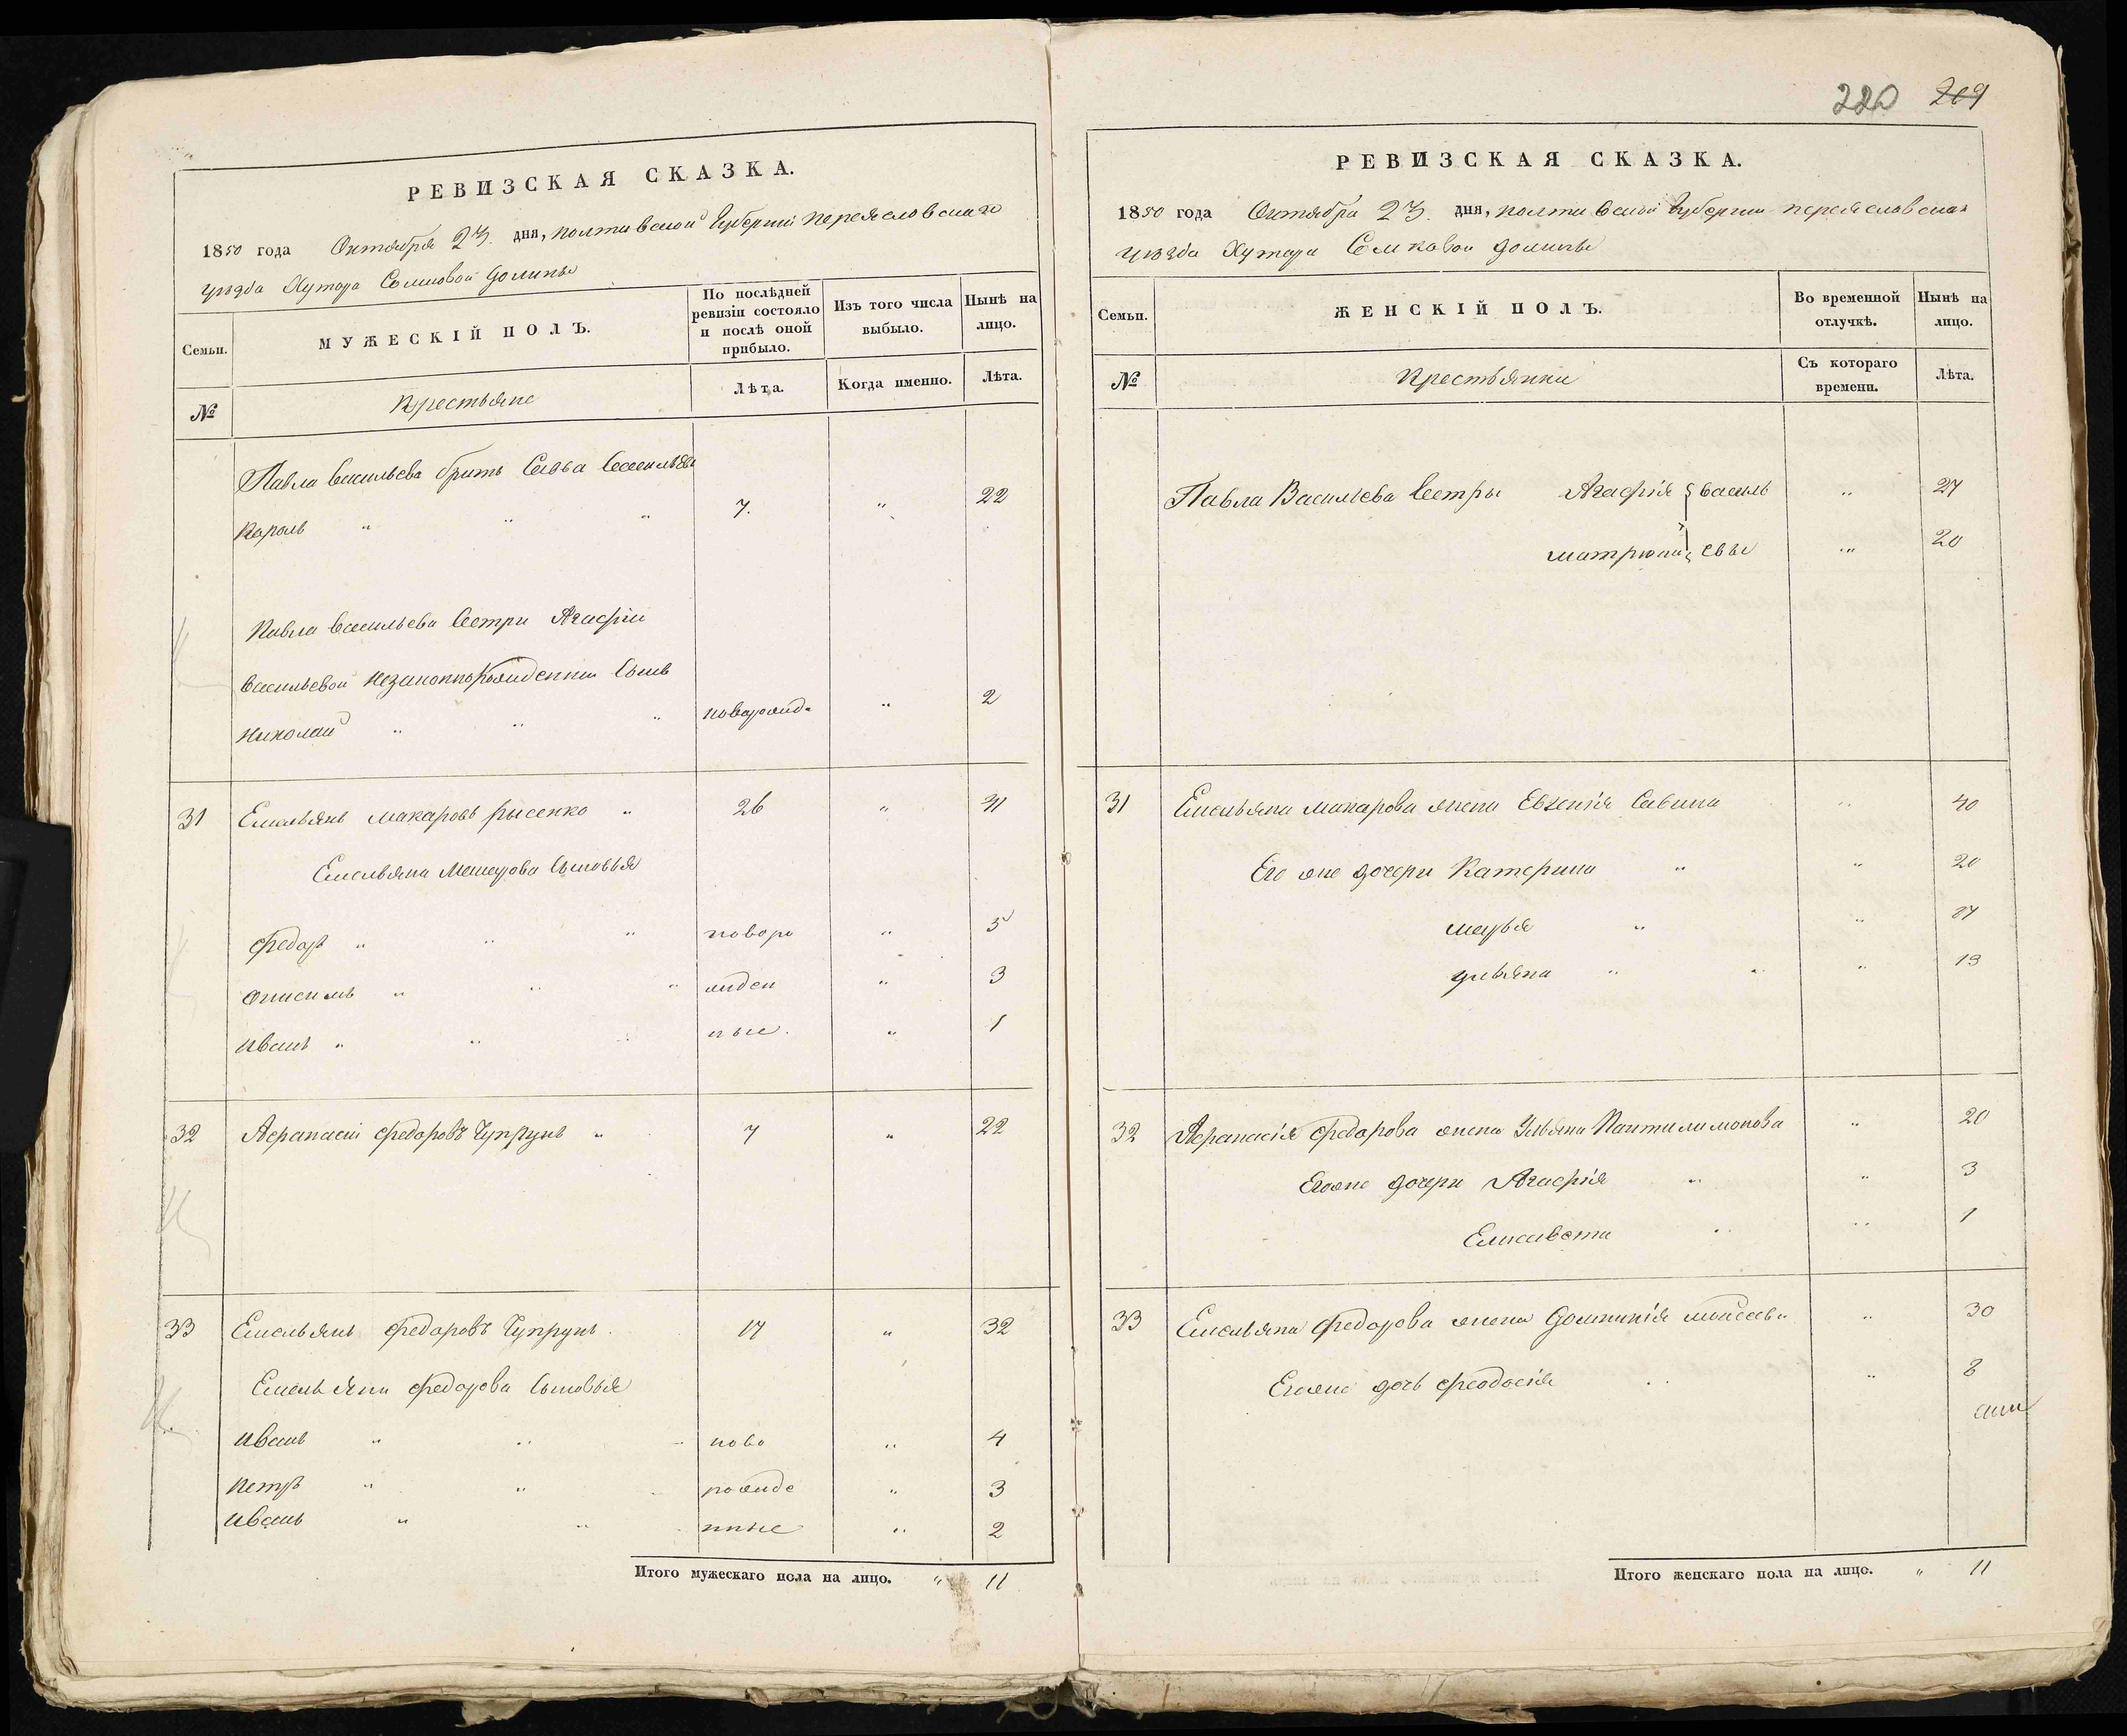 220 209
РЕВИЗСКАЯ СКАЗКА.
1850 года Октября 23. дня, полтавской губернии переясловскаго
уѣзда Хутора Сомковой долины
Семьи. МУЖЕСКІЙ ПОЛЪ. По послѣдней ревизіи состояло и послѣ оной прибыло. Изъ того числа выбыло. Нынѣ на лицо.
№ Крестьяне Лѣта. Когда именно. Лѣта.
Павла васильева братъ Савва
Король " " " 7. " 22
Павла васильева сестри Агафіи
васильевой незаконнорожденни сынъ
николай " " " новорожд. " 2
31 Емельянъ макаровъ рысенко " 26 " 41
Емельяна Макарова сыновья
федоръ " " " новоро " 5
онисимъ " " " жден " 3
иванъ " " " ные. " 1
32 Афанасій федоровъ Чупрунъ " 7 " 22
33 Емельянъ федоровъ Чупрунъ 17 " 32
Емельяна федорова сыновья
иванъ " " " ново " 4
петръ " " рожде " 3
иванъ " " нные " 2
Итого мужескаго пола на лицо. " 11
РЕВИЗСКАЯ СКАЗКА.
1850 года Октября 23. дня, полтавской губернии переясловскаго
уѣзда Хутора Сомковой долины
Семьи. ЖЕНСКІЙ ПОЛЪ. Во временной отлучкѣ. Нынѣ на лицо.
№ Крестьянки Съ котораго времени. Лѣта.
Павла Васильева сестры Агафія василь " 27
матрюна евы " 20
31 Емельяна макарова жена Евгенія Савина " 40
Его же дочери Катерина " " 20
марья " "
ульяна " " " 13
32 Афанасія федорова жена Ульяна Пантилимонова " 20
Егоже дочери Агафія " " 3
Елисавета " " 1
33 Емельяна федорова жена Домникія " 30
Егоже дочь феодосія " 8
Итого женскаго пола на лицо. " 11